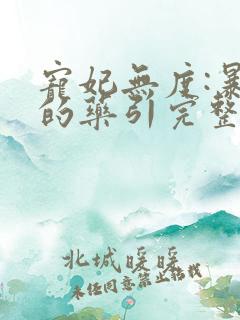 寵妃無度:暴
的藥引完整
北城暖暖
未经同意禁止转载